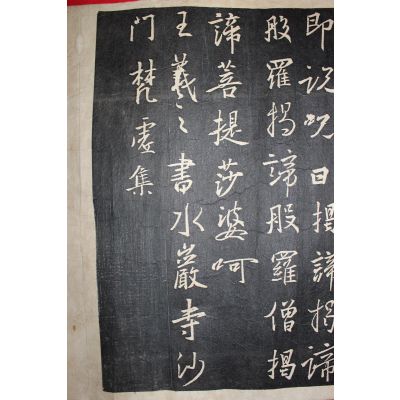 即说呪曰揭諦揭諦
般羅揭諦般羅僧揭
諦菩提莎婆呵
王羲之書水巖寺沙
门梵處集